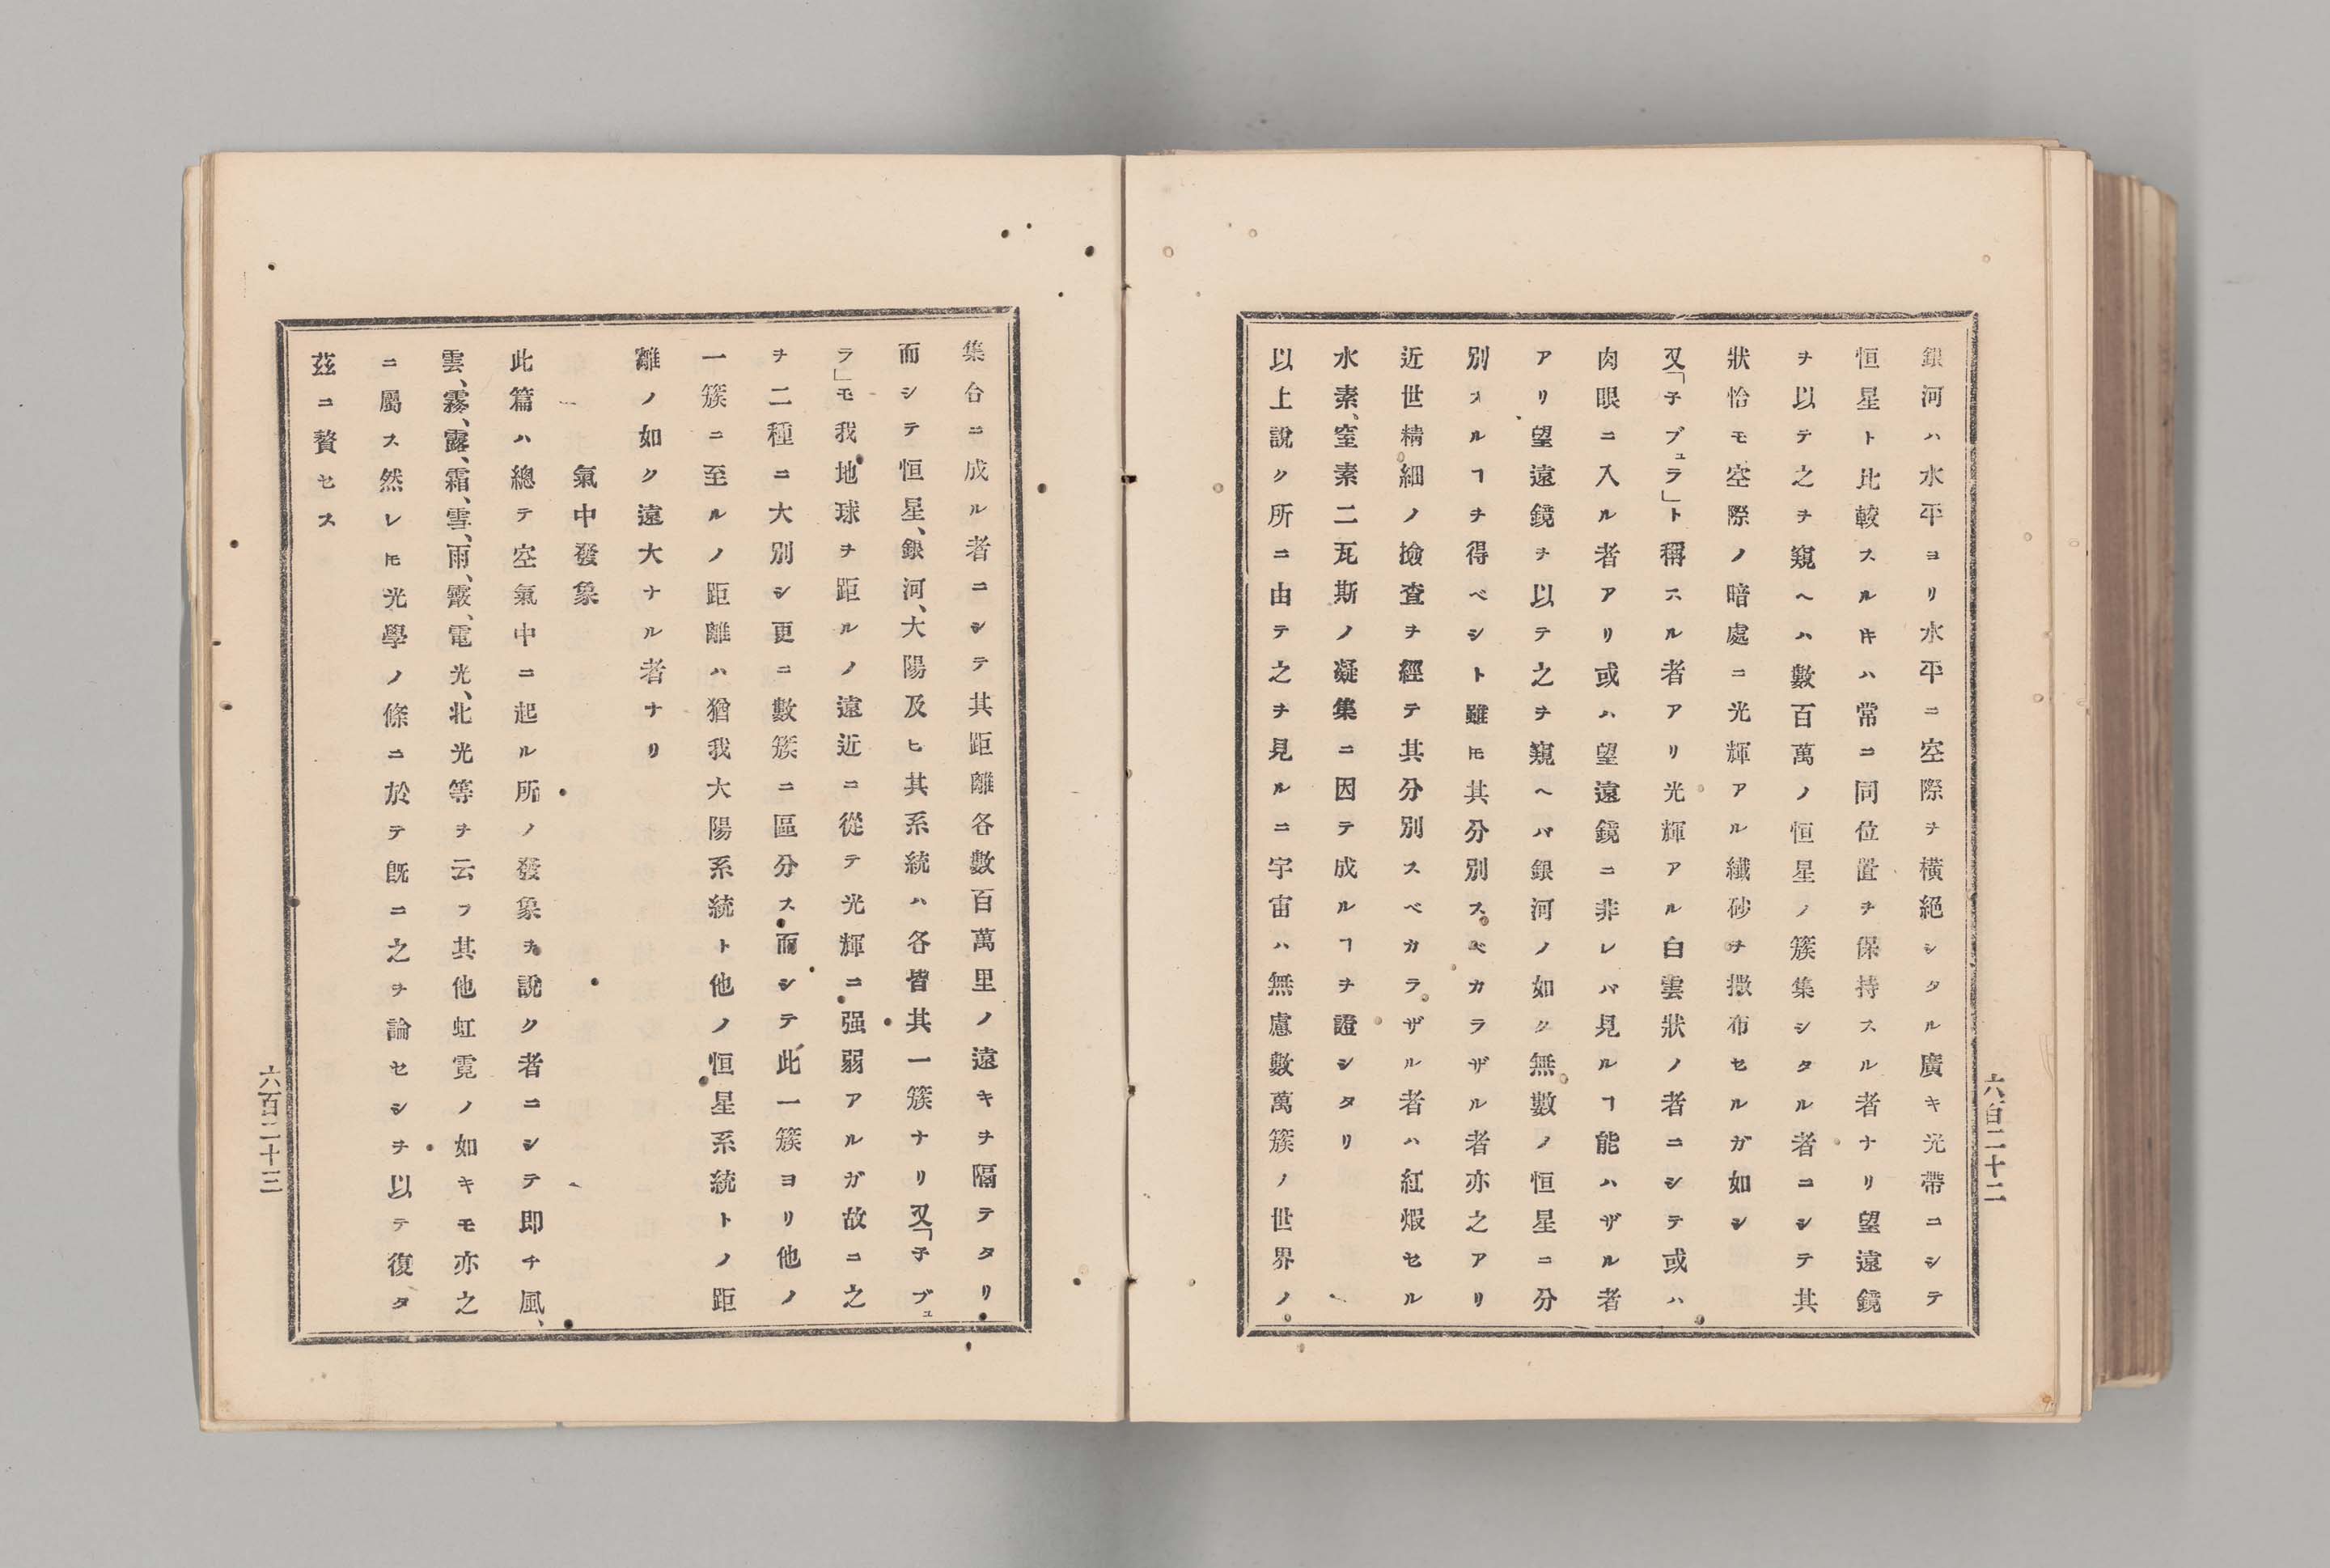 銀河ハ水平ヨリ水平ニ空際ヲ横絕シタル廣キ光帶ニシテ
恒星ト比較スルキハ常ニ同位置ヲ保持スル者ナリ望遠鏡
ヲ以テ之ヲ窺ヘハ數百萬ノ恒星ノ簇集シタル者ニシテ其
狀恰モ空際ノ暗處ニ光輝アル纎砂ヲ撒布セルガ如シ
又「子ブュラ」ト稱スル者アリ光輝アル白雲狀ノ者ニシテ或ハ
肉眼ニ入ル者アリ或ハ望遠鏡ニ非レバ見ルヿ能ハザル者
アリ望遠鏡ヲ以テ之ヲ窺ヘバ銀河ノ如ク無數ノ恒星ニ分
別スルヿヲ得ベシト雖𪜈其分別スベカラザル者亦之アリ
近世精細ノ撿査ヲ經テ其分別スベカラザル者ハ紅煆セル
水素、窒素二瓦斯ノ凝集ニ因テ成ルヿヲ證シタリ
以上說ク所ニ由テ之ヲ見ルニ宇宙ハ無慮數萬簇ノ世界ノ
六百二十二
集合ニ成ル者ニシテ其距離各數百萬里ノ遠キヲ隔テタリ
而シテ恒星、銀河、大陽及ヒ其系統ハ各皆其一簇ナリ又「子ブュ
ラ」モ我地球ヲ距ルノ遠近ニ從テ光輝ニ强弱アルガ故ニ之
ヲ二種ニ大別シ更ニ數簇ニ區分ス而シテ此一簇ヨリ他ノ
一簇ニ至ルノ距離ハ猶我大陽系統ト他ノ恒星系統トノ距
離ノ如ク遠大ナル者ナリ
氣中發象
此篇ハ總テ空氣中ニ起ル所ノ發象ヲ說ク者ニシテ即チ風、
雲、霧、露、霜、雪、雨、霰、電光、北光等ヲ云フ其他虹霓ノ如キモ亦之
ニ屬ス然レ𪜈光學ノ條ニ於テ旣ニ之ヲ論セシヲ以テ復タ
茲ニ贅セス
六百二十三